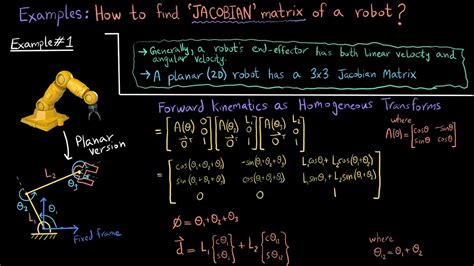 Examples: How to find 'JACOBIAN' matrix of a robot?
Example#1
→ Generally, a robot's end-effector has both linear velocity and
angular velocity.
→ A planar (2D) robot has a 3x3 Jacobian Matrix
Planar
version
L₂
θ₃
θ₂
L₁
θ₁
Fixed frame
Forward Kinematics as Homogeneous Transforms
where
A(θ) = [cosθ -sinθ
sinθ cosθ]
cos(θ₁+θ₂+θ₃) -sin(θ₁+θ₂+θ₃) L₁cosθ₁ + L₂cos(θ₁+θ₂)
sin(θ₁+θ₂+θ₃) cos(θ₁+θ₂+θ₃) L₁sinθ₁ + L₂sin(θ₁+θ₂)
0 0 1
Ø = θ₁+θ₂+θ₃
d = L₁{cθ₁ sθ₁} + L₂{cθ₁₂ sθ₁₂}
where
θ₁₂ = θ₁+θ₂